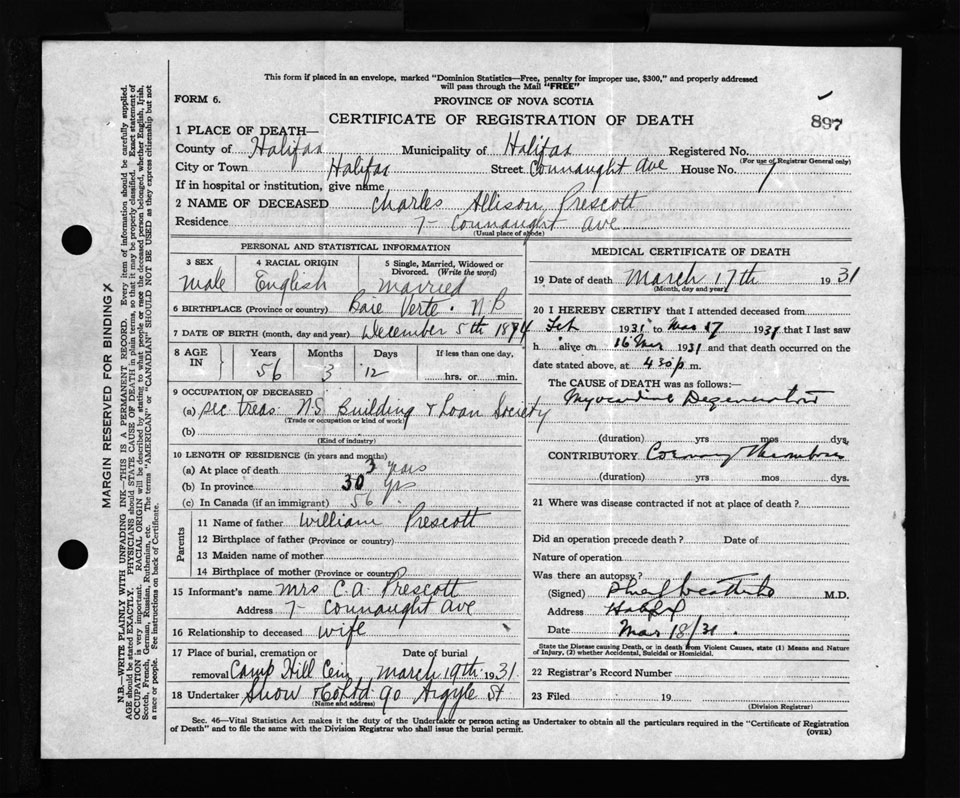 This form if placed in an envelope, marked "Dominion Statistics—Free, penalty for improper use, $300," and properly addressed
will pass through the Mail "FREE"
FORM 6.
PROVINCE OF NOVA SCOTIA
CERTIFICATE OF REGISTRATION OF DEATH
897
1 PLACE OF DEATH—
County of Halifax Municipality of Halifax Registered No.
(For use of Registrar General only)
City or Town Halifax Street Connaught Ave House No. 7
If in hospital or institution, give name
2 NAME OF DECEASED Charles Allison Prescott
Residence 7 - Connaught Ave
(Usual place of abode)
PERSONAL AND STATISTICAL INFORMATION
3 SEX 4 RACIAL ORIGIN 5 Single, Married, Widowed or
Divorced. (Write the word)
Male English Married
6 BIRTHPLACE (Province or country) Baie Verte. N B
7 DATE OF BIRTH (month, day and year) December 5th 1874
8 AGE IN Years Months Days If less than one day,
56 3 12 hrs. or min.
9 OCCUPATION OF DECEASED
(a) Sec Treas. N.S. Building & Loan Society
(Trade or occupation or kind of work)
(b)
(Kind of industry)
10 LENGTH OF RESIDENCE (in years and months)
(a) At place of death 3 years
(b) In province 30 yrs
(c) In Canada (if an immigrant) 56 yrs
Parents
11 Name of father William Prescott
12 Birthplace of father (Province or country)
13 Maiden name of mother
14 Birthplace of mother (Province or country)
15 Informant's name Mrs C. A. Prescott
Address 7 - Connaught Ave
16 Relationship to deceased Wife
17 Place of burial, cremation or Date of burial
removal Camp Hill Cem March 19th 1931
18 Undertaker Snow & Co Ltd 90 Argyle St
(Name and address)
MEDICAL CERTIFICATE OF DEATH
19 Date of death March 17th 1931
(Month, day and year)
20 I HEREBY CERTIFY that I attended deceased from
Feb 1931 to Mar 17 1931 that I last saw
h alive on 16 Mar 1931 and that death occurred on the
date stated above, at 4 30 p m.
The CAUSE of DEATH was as follows:—
Myocardial Degeneration
(duration) yrs mos dys.
CONTRIBUTORY Coronary Thrombosis
(duration) yrs mos dys.
21 Where was disease contracted if not at place of death?
Did an operation precede death? Date of
Nature of operation
Was there an autopsy?
(Signed) M.D.
Address Halifax
Date Mar 18/31.
State the Disease causing Death, or in death from Violent Causes, state (1) Means and Nature
of Injury, (2) whether Accidental, Suicidal or Homicidal.
22 Registrar's Record Number
23 Filed 19
(Division Registrar)
Sec. 46—Vital Statistics Act makes it the duty of the Undertaker or person acting as Undertaker to obtain all the particulars required in the "Certificate of Registration
of Death" and to file the same with the Division Registrar who shall issue the burial permit.
(OVER)
MARGIN RESERVED FOR BINDING X
N.B.—WRITE PLAINLY WITH UNFADING INK—THIS IS A PERMANENT RECORD. Every item of information should be carefully supplied.
AGE should be stated EXACTLY. PHYSICIANS should STATE CAUSE OF DEATH in plain terms, so that it may be properly classified. Exact statement of
OCCUPATION is very important. RACIAL ORIGIN will be described by stating to what people or race the deceased person belonged, whether English, Irish,
Scotch, French, German, Russian, Ruthenian, etc. The terms "AMERICAN" or "CANADIAN" SHOULD NOT BE USED as they express citizenship but not
a race or people. See instructions on back of Certificate.